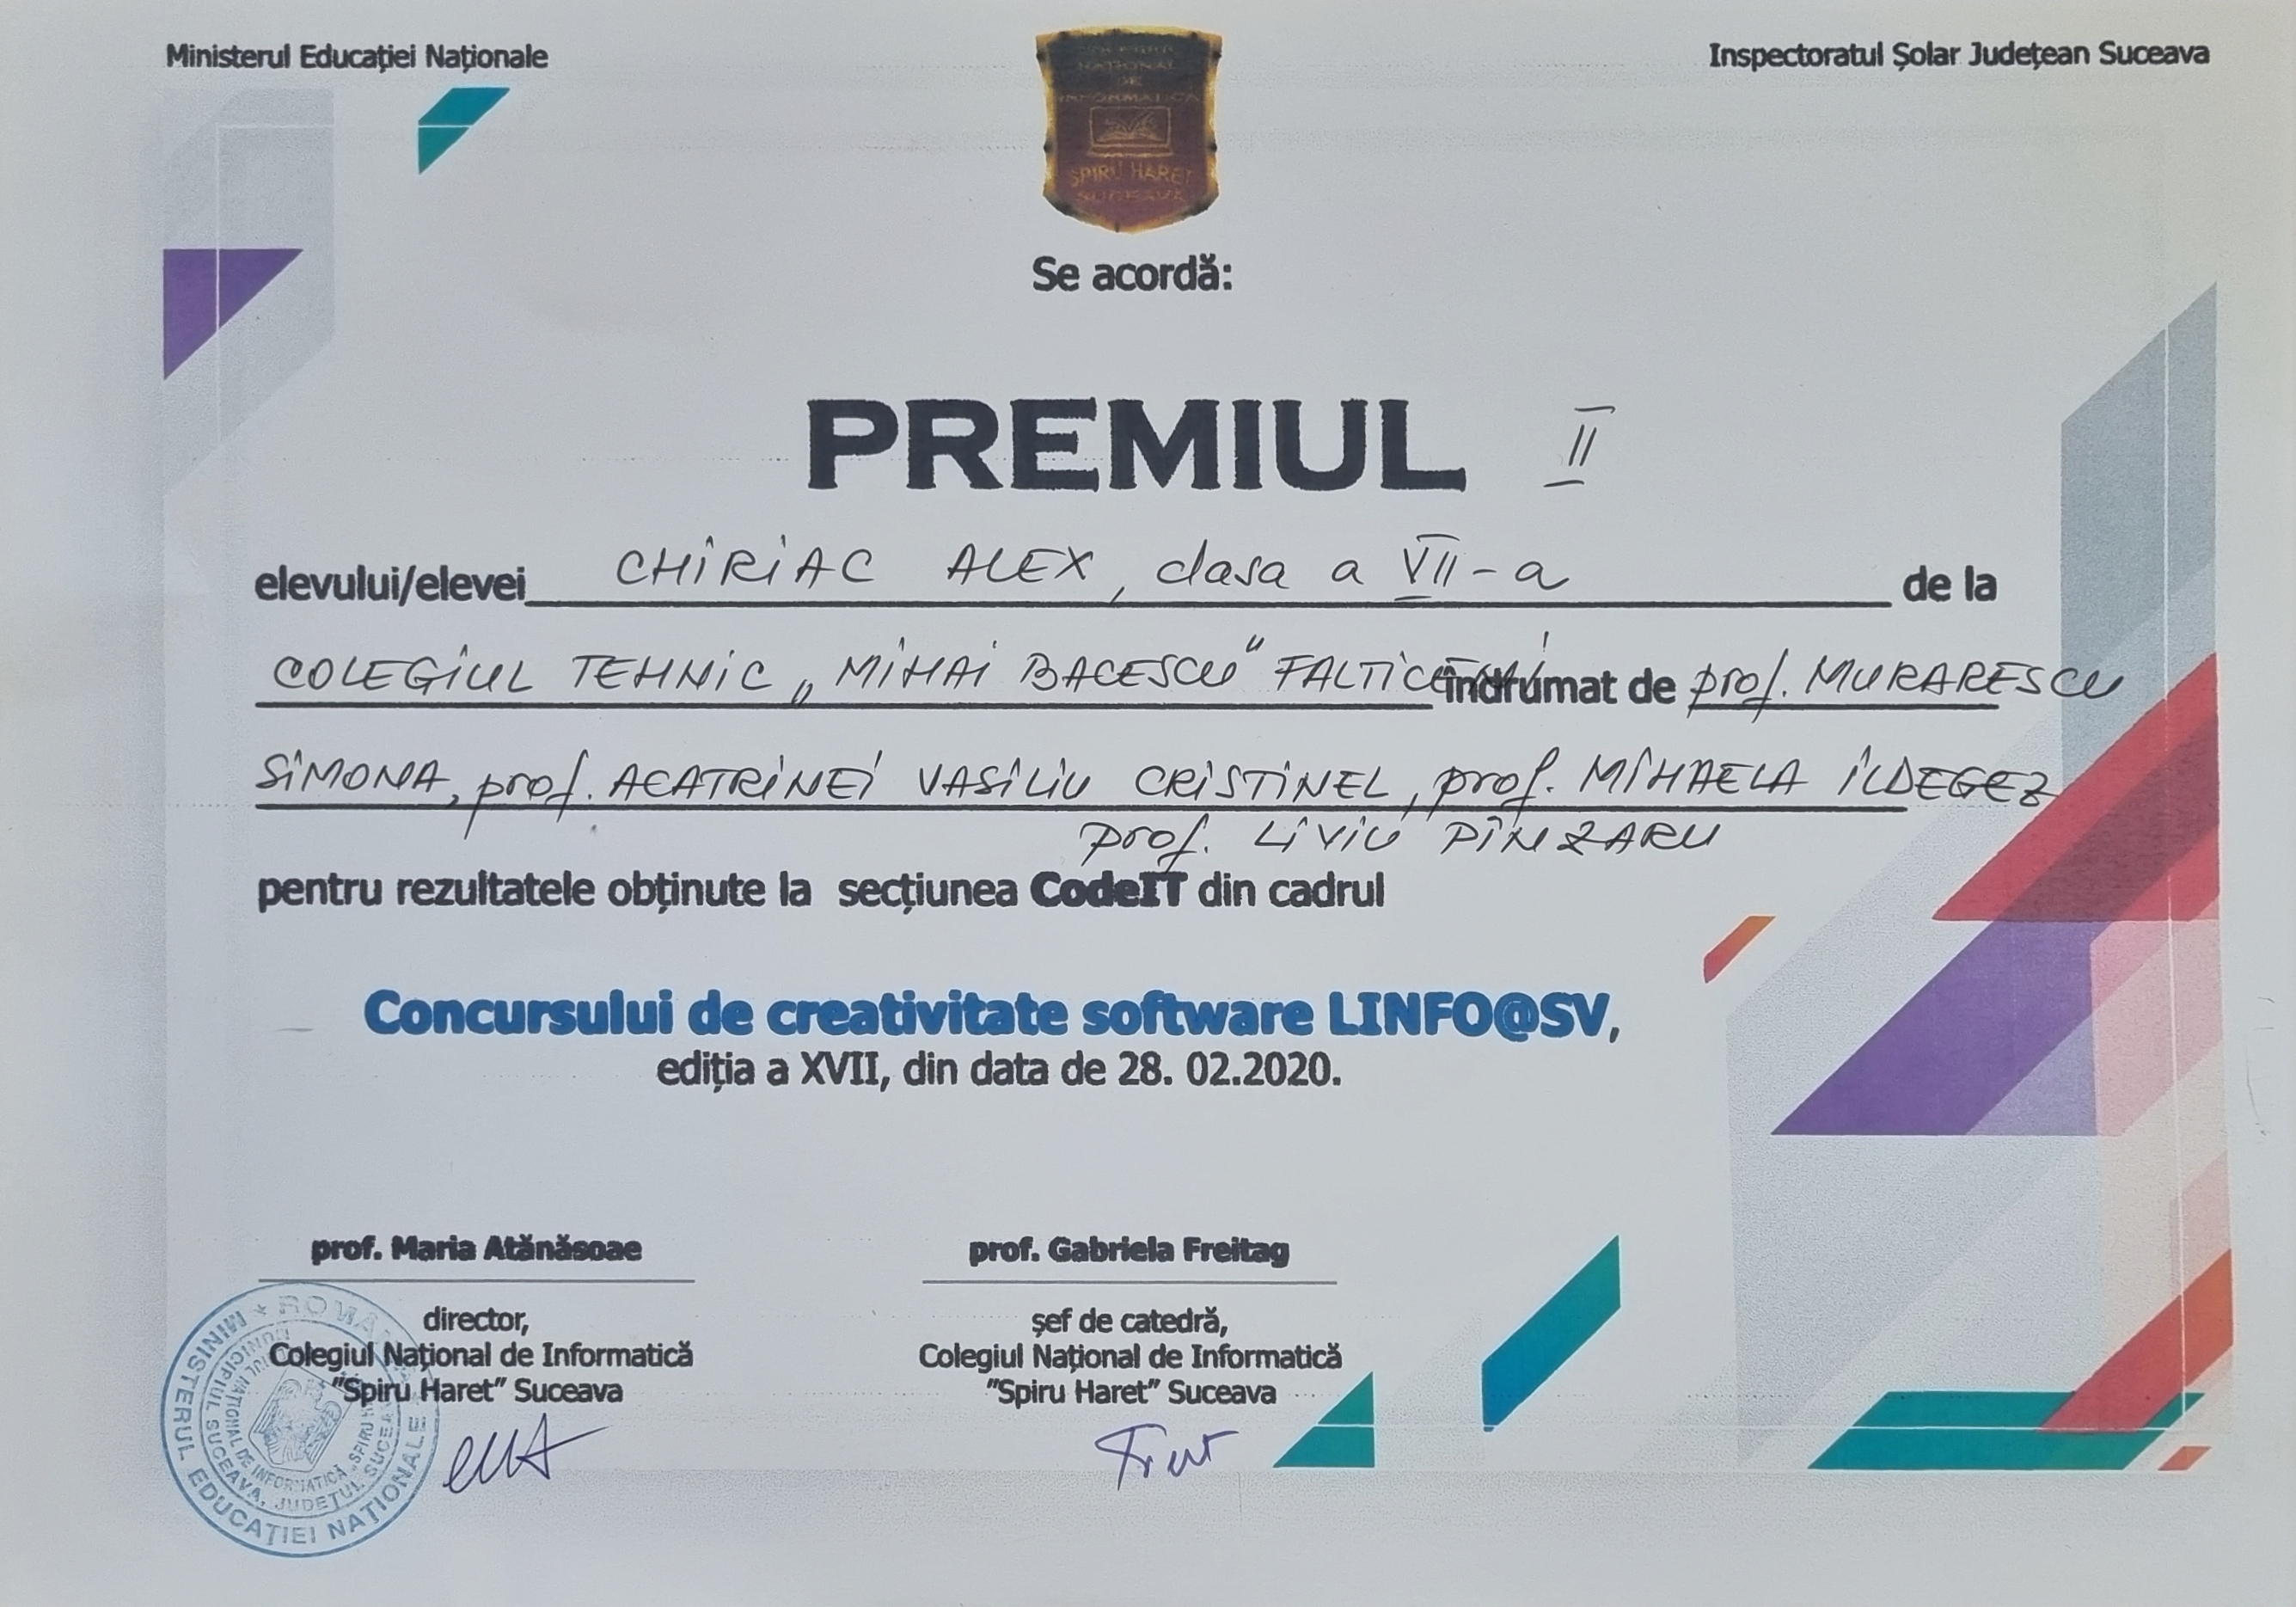 Ministerul Educației Naționale
Inspectoratul Șolar Județean Suceava
NAȚIONAL
DE
INFORMATICA
SPIRU HARET
SUCEAVA
Se acordă:
PREMIUL II
elevului/elevei CHIRIAC ALEX, clasa a VII-a de la
COLEGIUL TEHNIC „MIHAI BACESCU" FALTICENI îndrumat de prof. MURARESCU
SIMONA, prof. ACATRINEI VASILIU CRISTINEL, prof. MIHAELA ILDEGEZ
prof. LIVIU PÎNZARU
pentru rezultatele obținute la secțiunea CodeIT din cadrul
Concursului de creativitate software LINFO@SV,
ediția a XVII, din data de 28. 02.2020.
prof. Maria Atănăsoae
director,
Colegiul Național de Informatică
"Spiru Haret" Suceava
prof. Gabriela Freitag
șef de catedră,
Colegiul Național de Informatică
"Spiru Haret" Suceava
ROMÂNIA * MINISTERUL EDUCAȚIEI NAȚIONALE
MUNICIPIUL SUCEAVA, JUDEȚUL SUCEAVA
NAȚIONAL DE INFORMATICĂ „SPIRU